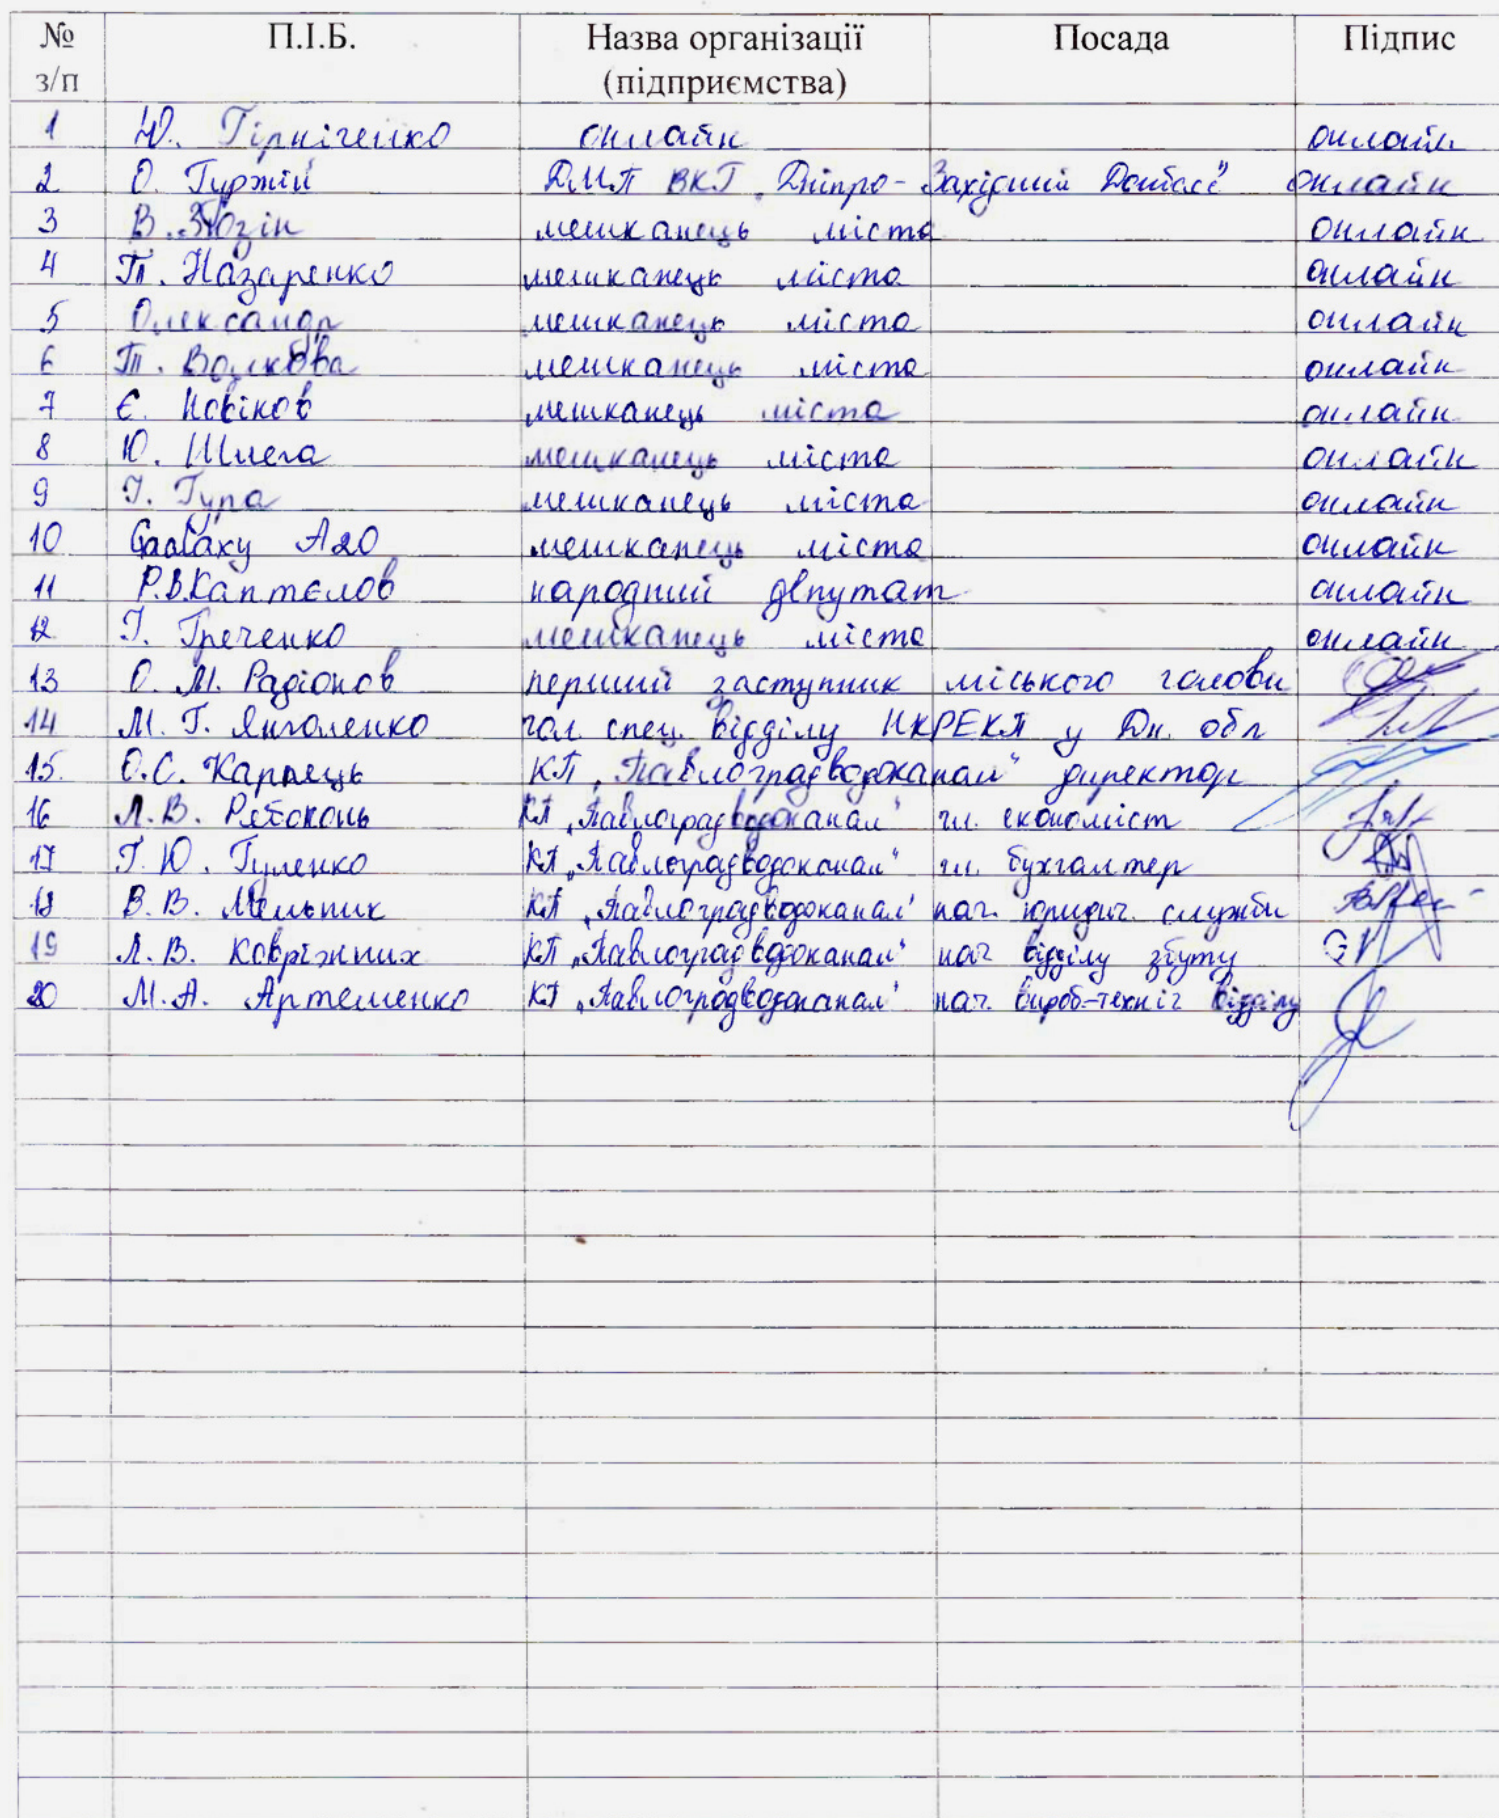 № з/п П.І.Б. Назва організації (підприємства) Посада Підпис
1 Ю. Гірніченко онлайн онлайн
2 О. Гуржій ДМП ВКГ "Дніпро-Західний Донбас" онлайн
3 В. Зюзін мешканець міста онлайн
4 Т. Назаренко мешканець міста онлайн
5 Олександр мешканець міста онлайн
6 Т. Волкова мешканець міста онлайн
7 Є. Новіков мешканець міста онлайн
8 Ю. Шлега мешканець міста онлайн
9 Г. Гупа мешканець міста онлайн
10 Galaxy A20 мешканець міста онлайн
11 Р.В.Каптєлов народний депутат онлайн
12 Г. Греченко мешканець міста онлайн
13 О. М. Радіонов перший заступник міського голови
14 М. Г. Янголенко гол. спец. відділу НКРЕКП у Дн. обл
15. О.С. Карпець КП "Павлоградводоканал" директор
16 Л.В. Рябоконь КП "Павлоградводоканал" гл. економіст
17 Г. Ю. Гуленко КП "Павлоградводоканал" гл. бухгалтер
18 В.В. Мельник КП "Павлоградводоканал" нач. юридич. служби
19 Л.В. Ковріжних КП "Павлоградводоканал" нач відділу збуту
20 М.А. Артеменко КП "Павлоградводоканал" нач. вироб.-техніч відділу